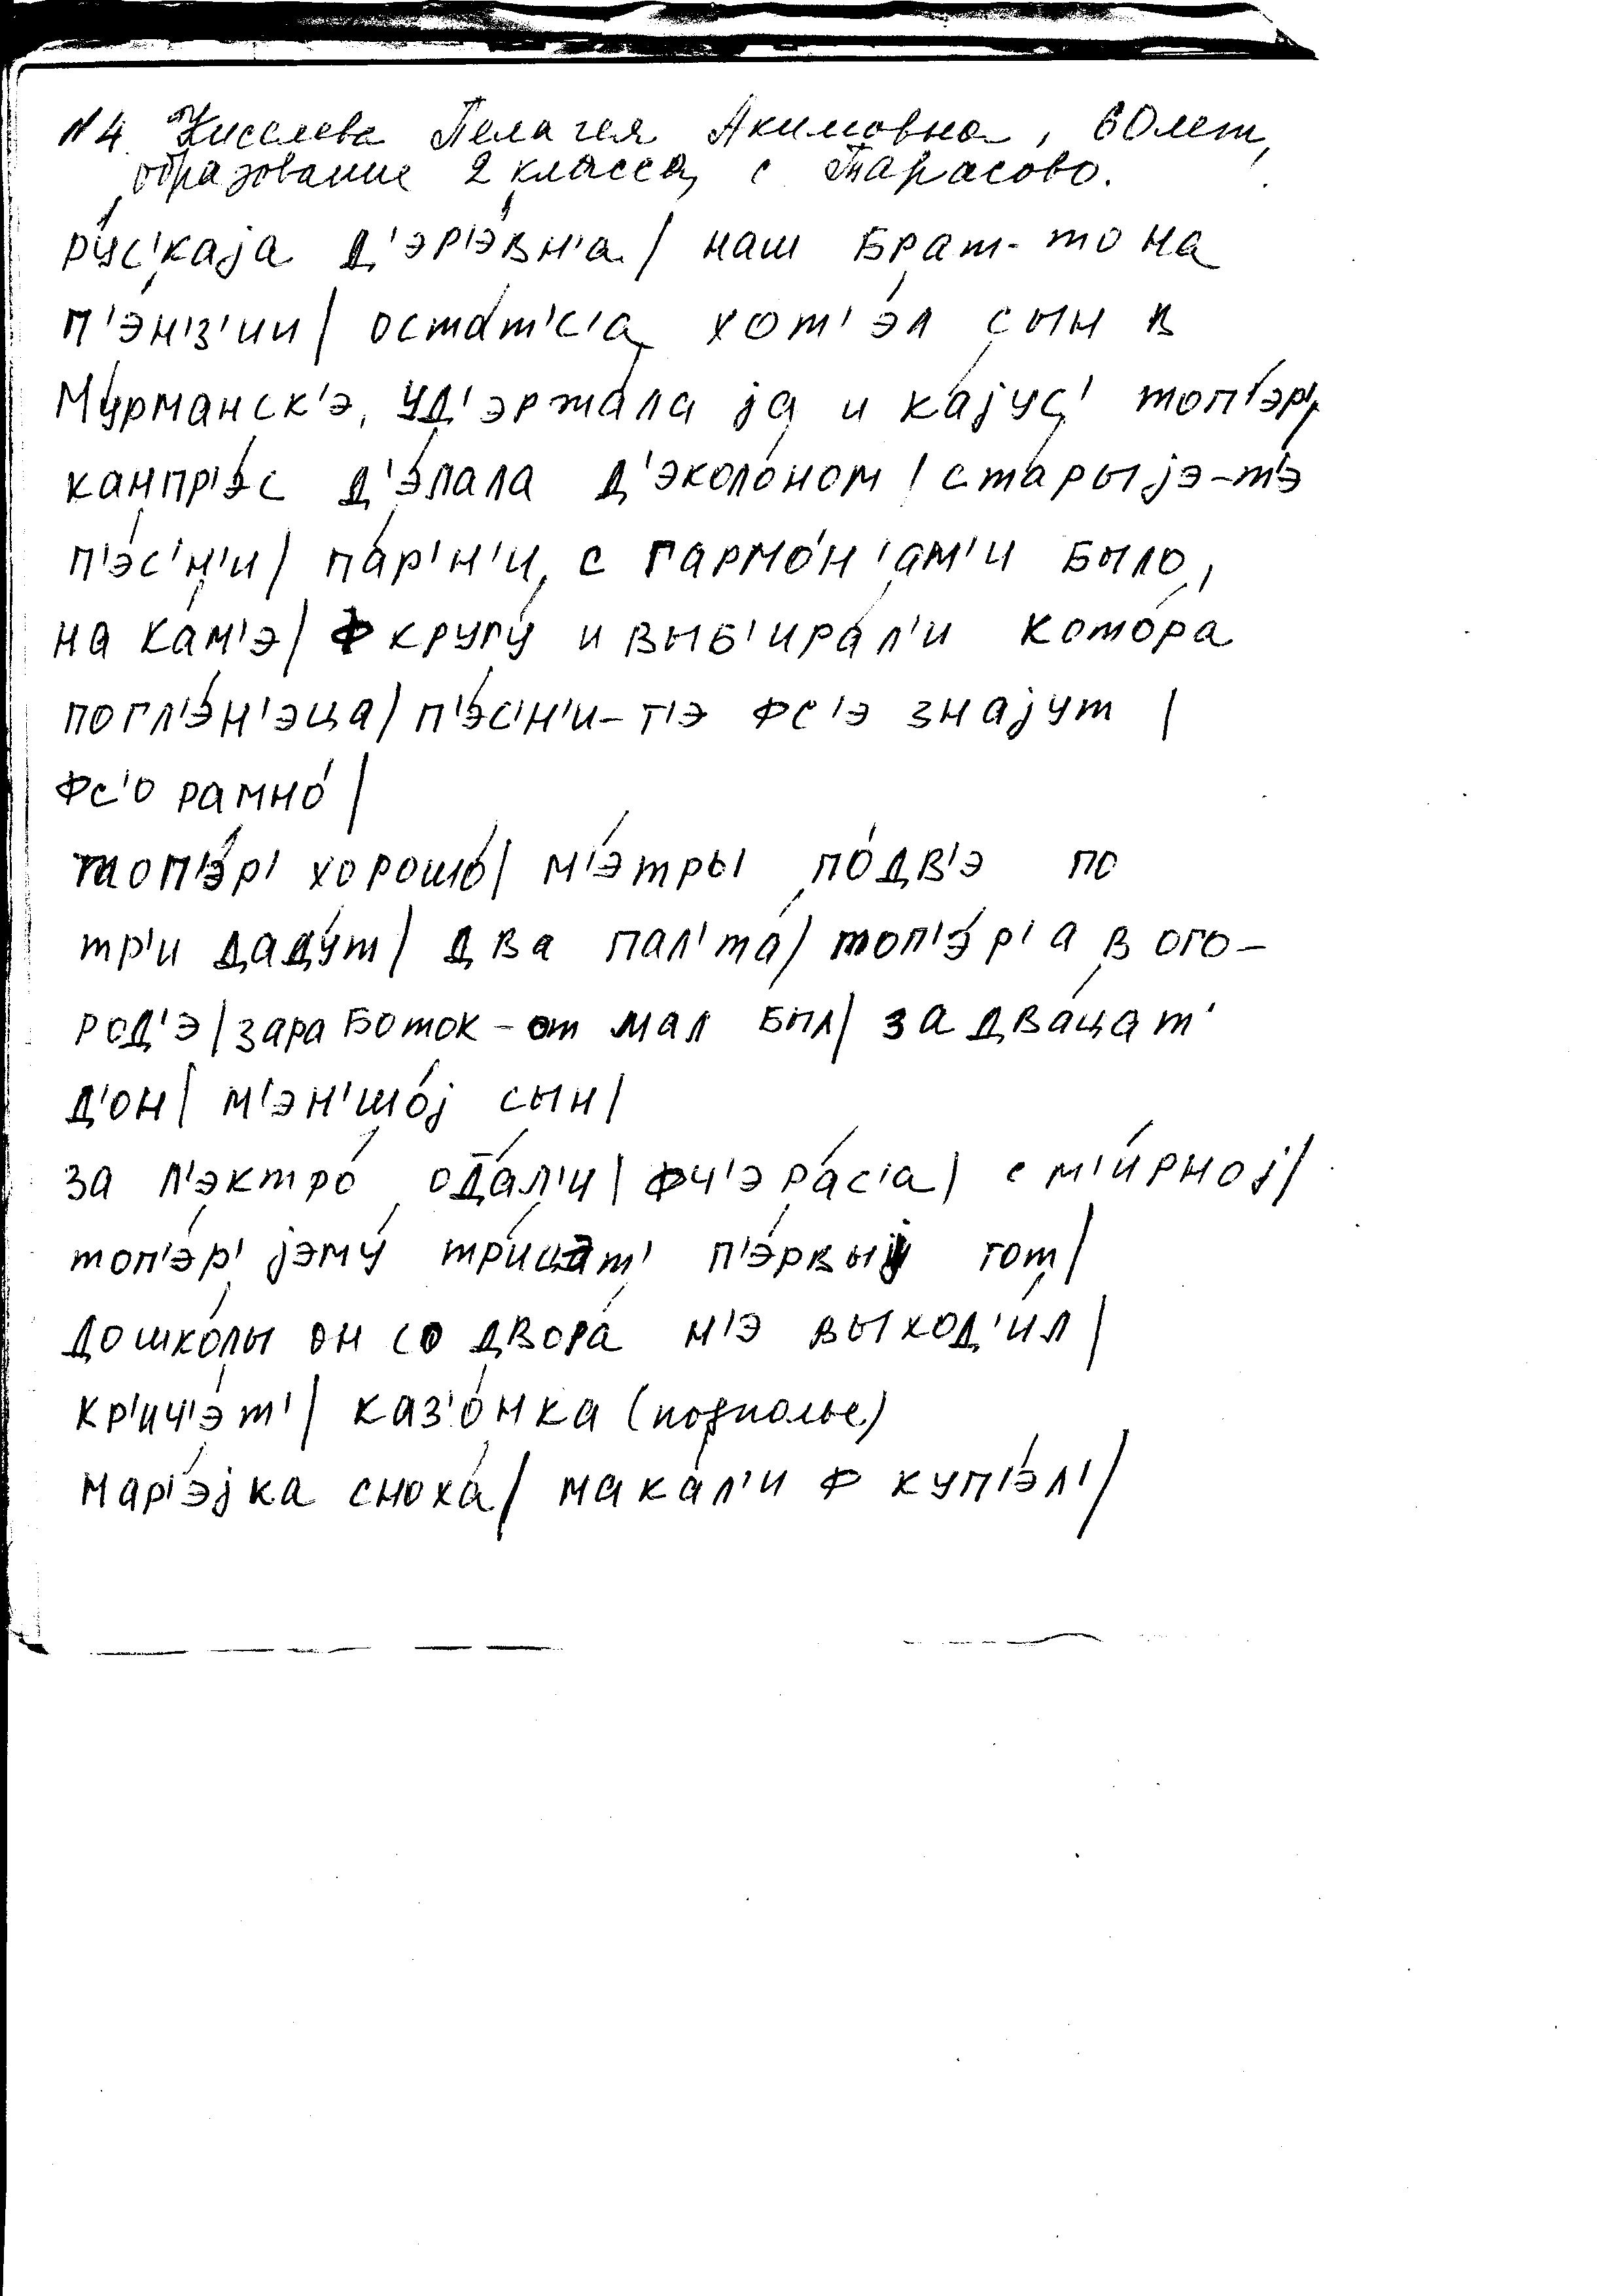 №4. Киселева Пелагея Акимовна, 60 лет,
образование 2 класса, с. Тарасово.
ру́с'каjа д'эр'э́вн'а / наш брат-то на
п'э́нз'ии / оста́т'с'а хот'э́л сын в
Му́рманск'э, уд'эржа́ла jа и ка́jус' топ'э́р',
канпр'э́с д'э́лала д'эколо́ном / ста́рыjэ-т'э
п'э́с'н'и / па́р'н'и, с гармо́н'ам'и было,
на ка́м'э / ф кругу́ и выб'ира́л'и кото́ра
погл'э́н'эца / п'э́с'н'и-т'э фс'э знаjут /
фс'о рамно́ /
топ'э́р' хорошо́ / м'э́тры по́дв'э по
тр'и даду́т / два пал'та́ / топ'э́р'а в ого-
род'э / заработок-от мал был / за два́цат'
д'он / м'эн'шо́j сын /
за л'эктро́ ода́л'и / фч'эра́с'а / с м'и́рноj /
топ'э́р' jэму́ три́цат' п'э́рвыj гот /
до шко́лы он со двора́ н'э выход'и́л /
кр'ич'э́т' / каз'о́нка (подполье)
мар'э́jка сноха́ / мака́л'и ф куп'э́л' /